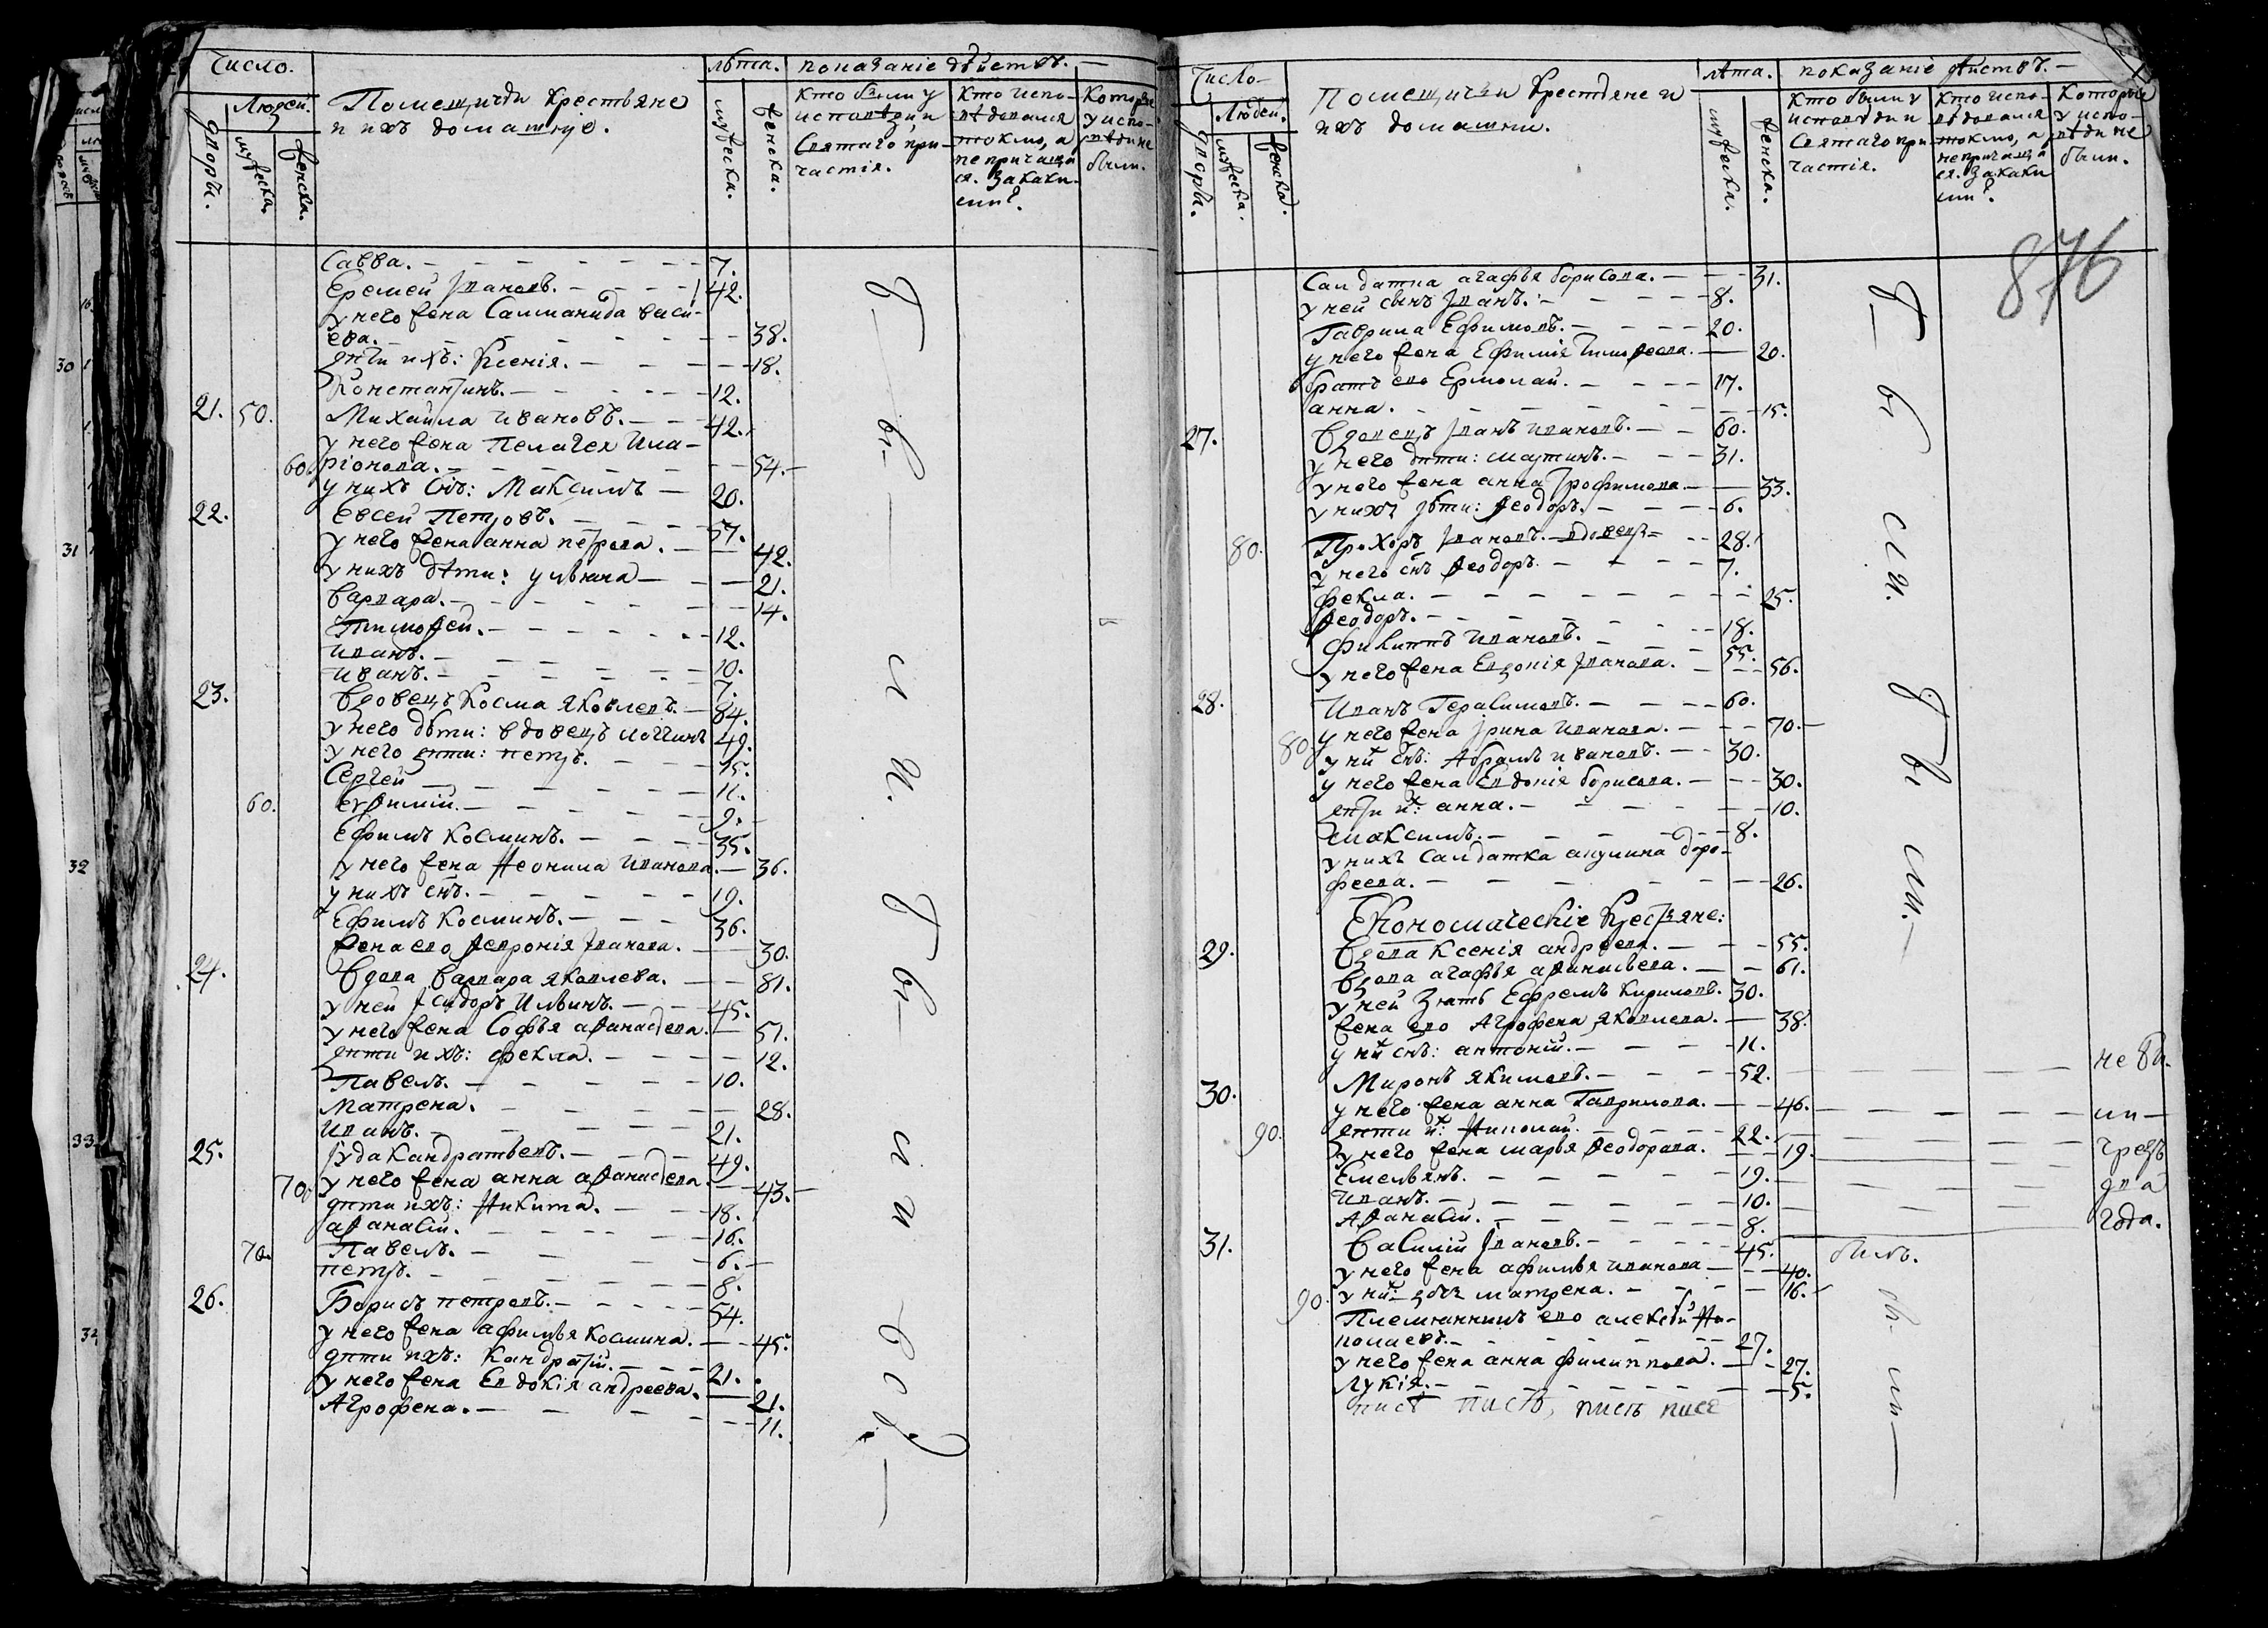 Число.
лѣта. показаніе дѣйствъ.
Людей.
Помещичьи крестьяне
и ихъ домашніе.
дворы.
мужеска.
женска.
мужеска.
женска.
Кто были у
исповѣди и
Святаго при-
частія.
Кто испо-
вѣдовался
токмо, а
не причаща
ся. За каки
ми?
Которые
у испо-
вѣди не
были.
Савва. 7.
Еремей Iвановъ. 42.
у него жена Саломанида васи-
ева. 38.
дѣти ихъ: Ксенія. 18.
Константинъ. 12.
21. 50. Михаила ивановъ. 42.
у него жена Пелагея Ила-
60. ріонова. 54.
у нихъ снъ: Максимъ 20.
22. Евсей Петровъ. 57.
у него жена анна петрова. 42.
у нихъ дѣти: ульяна 21.
варвара. 14.
Тимоѳей. 12.
иванъ. 10.
иванъ. 7.
23. вдовецъ Косма яковлевъ. 84.
у него дѣти: вдовецъ логгинъ 49.
у него дѣти: петръ. 15.
Сергей 11.
60. евѳимій. 9.
Ефимъ Косминъ. 35.
у него жена Неонила иванова. 36.
у нихъ снъ. 19.
Ефимъ Косминъ. 36.
жена ево ѳевронія Iванова. 30.
24. вдова варвара яковлева. 81.
у ней Iсидоръ Ильинъ. 45.
у него жена Софья аѳанасева. 51.
дѣти ихъ: фекла. 12.
Павелъ. 10.
Матрена. 28.
иванъ. 21.
25. Iуда Кандратьевъ. 49.
70. у него жена анна аѳанасева. 43.
дѣти ихъ: Никита. 18.
аѳанасій. 16.
70. Павелъ. 6.
петръ. 8.
26. Борисъ петровъ. 54.
у него жена афимья Космина. 45.
дѣти ихъ: Кандратій. 21.
у него жена Евдокія андреева. 21.
Агрофена. 11.
Число
лѣта. показаніе дѣйствъ.
Людей.
Помещичьи крестьяне и
ихъ домашни.
дворы.
мужеска.
женска.
мужеска.
женска.
Кто были у
исповѣди и
Святаго при-
частія.
Кто испо-
вѣдовался
токмо, а
не причаща
ся. За каки
ми?
Которые
у испо-
вѣди не
были.
876
Салдатка агафья борисова. 31.
у ней сынъ Iванъ. 8.
Гаврила Ефимовъ. 20.
у него жена Ефимія Тимоѳеева. 20.
братъ ево Ермолай. 17.
анна. 15.
27. вдовецъ Iванъ ивановъ. 60.
у него дѣти: мартинъ. 31.
у него жена анна Трофимова. 33.
у нихъ дѣти: ѳеодоръ. 6.
80. Прохоръ Iвановъ. вдовецъ 28.
у него снъ ѳеодоръ. 7.
фекла. 25.
ѳеодоръ. 18.
филиппъ ивановъ. 55.
у него жена Евдокія Iванова. 56.
28. Иванъ Герасимовъ. 60.
у него жена Iрина иванова. 70.
80. у нихъ снъ: Абрамъ ивановъ. 30.
у него жена Евдокія борисова. 30.
дѣти ихъ: анна. 10.
Максимъ. 8.
у нихъ салдатка акулина доро-
феева. 26.
Економическіе Крестьяне:
29. вдова Ксенія андреева. 55.
вдова агафья аѳанасьева. 61.
у ней зять Ефремъ Кириловъ. 30.
жена ево Агрофена яковлева. 38.
у нихъ снъ: антоній. 11.
30. Миронъ якимовъ. 52. не бы-
у него жена анна Гаврилова. 46. ли
90. дѣти ихъ: Николай. 22.
у него жена марья ѳеодорова. 19. чрезъ
Емельянъ. 19. два
иванъ. 10.
Аѳанасій. 8. года.
31. василій Iвановъ. 45. былъ.
у него жена афимья иванова 40.
90. у нихъ дочь матрена. 16.
Племянникъ ево алексѣй Ни-
колаевъ. 27.
у него жена анна филиппова. 27.
Лукія. 5.
писъ писъ, писъ писе